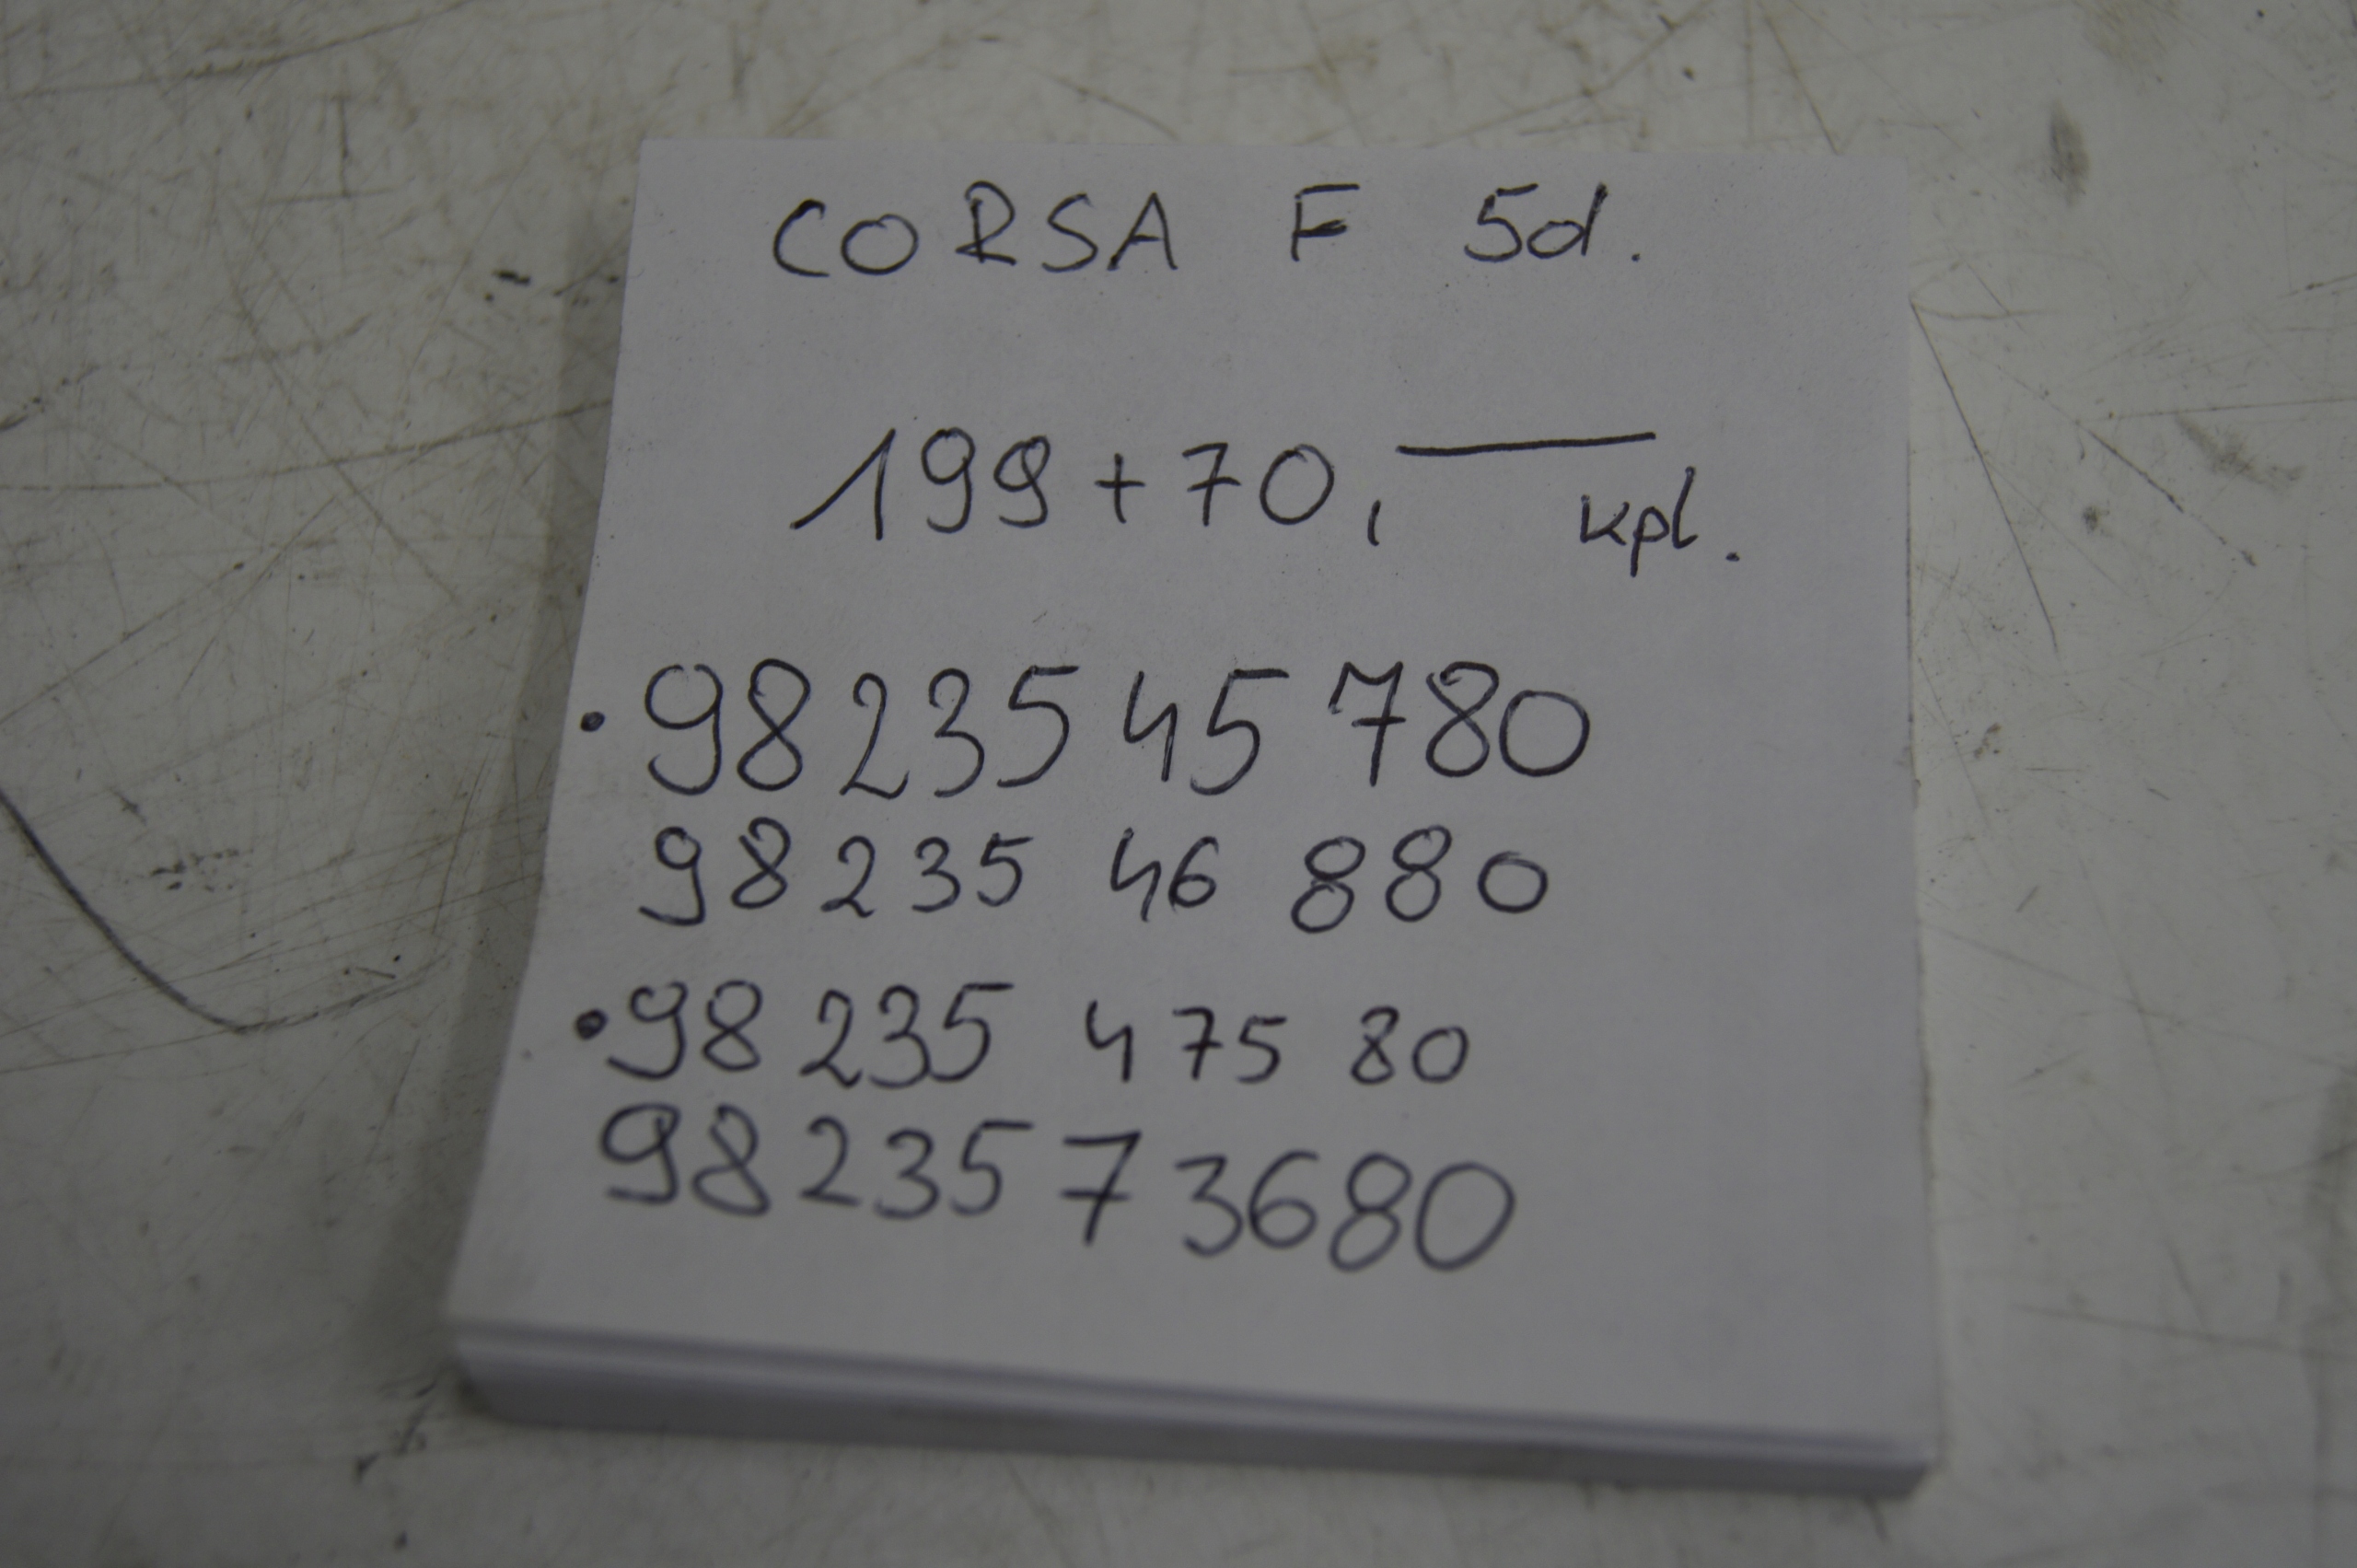 CORSA F 5d.
199+70,— kpl.
•98235 45 780
98235 46 880
•98 235 4 75 80
98235 73680